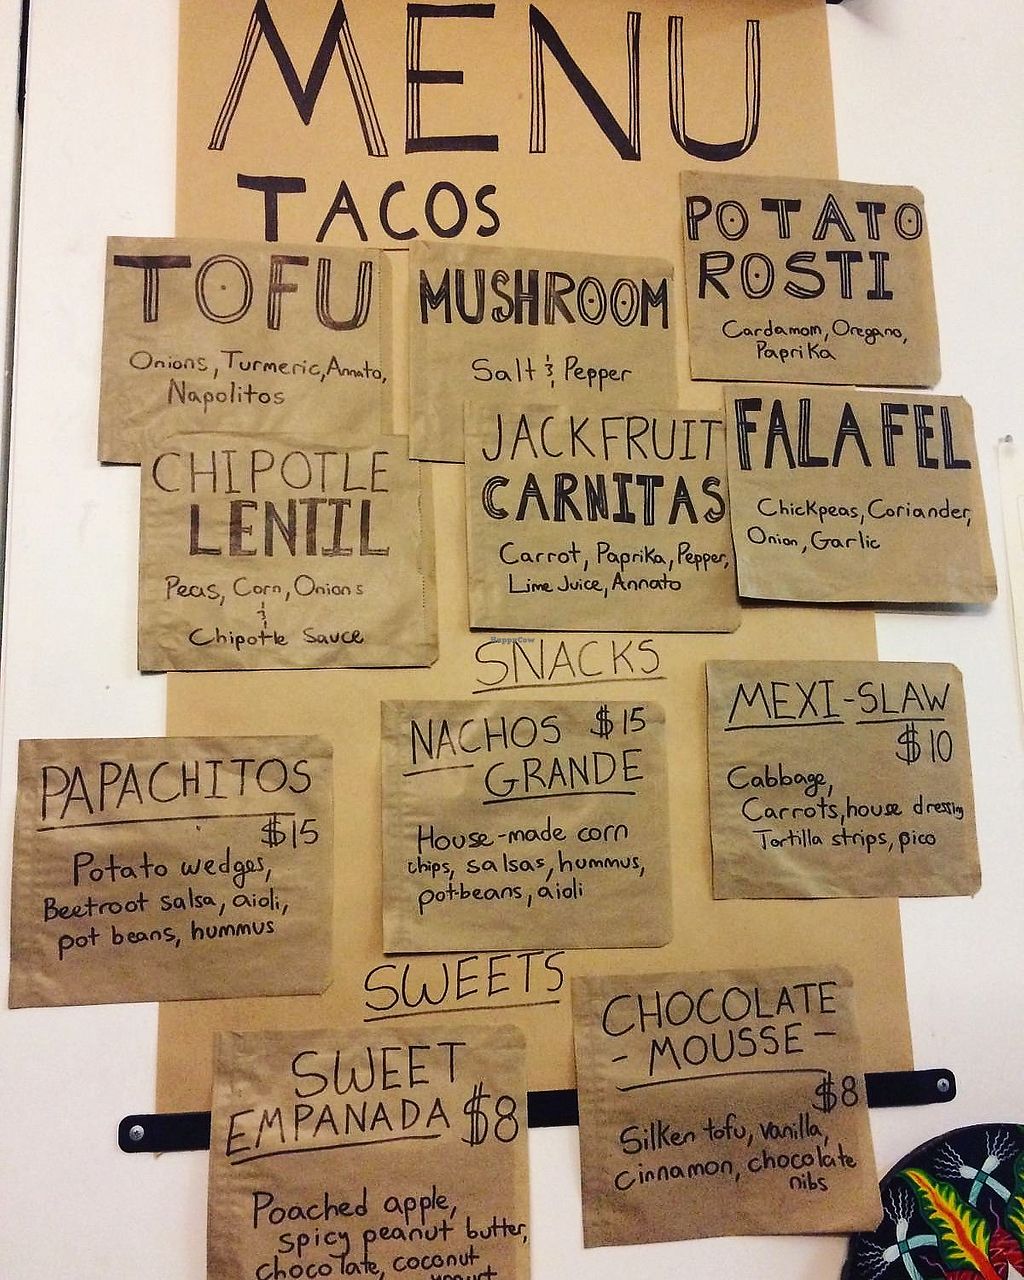 MENU
TACOS
TOFU
Onions, Turmeric, Annato,
Napolitos
MUSHROOM
Salt & Pepper
POTATO
ROSTI
Cardamom, Oregano,
Paprika
CHIPOTLE
LENTIL
Peas, Corn, Onions
&
Chipotle Sauce
JACKFRUIT
CARNITAS
Carrot, Paprika, Pepper,
Lime Juice, Annato
FALAFEL
Chickpeas, Coriander,
Onion, Garlic
HappyCow
SNACKS
PAPACHITOS
$15
Potato wedges,
Beetroot salsa, aioli,
pot beans, hummus
NACHOS $15
GRANDE
House-made corn
chips, salsas, hummus,
pot-beans, aioli
MEXI-SLAW
$10
Cabbage,
Carrots, house dressing
Tortilla strips, pico
SWEETS
SWEET
EMPANADA $8
Poached apple,
spicy peanut butter,
chocolate, coconut
yogurt
CHOCOLATE
- MOUSSE -
$8
Silken tofu, vanilla,
cinnamon, chocolate
nibs